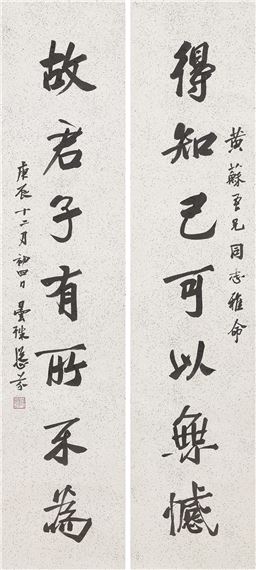 得知己可以無憾
黃蘇至兄同志雅命
故君子有所不為
庚辰十二月初四日曼殊